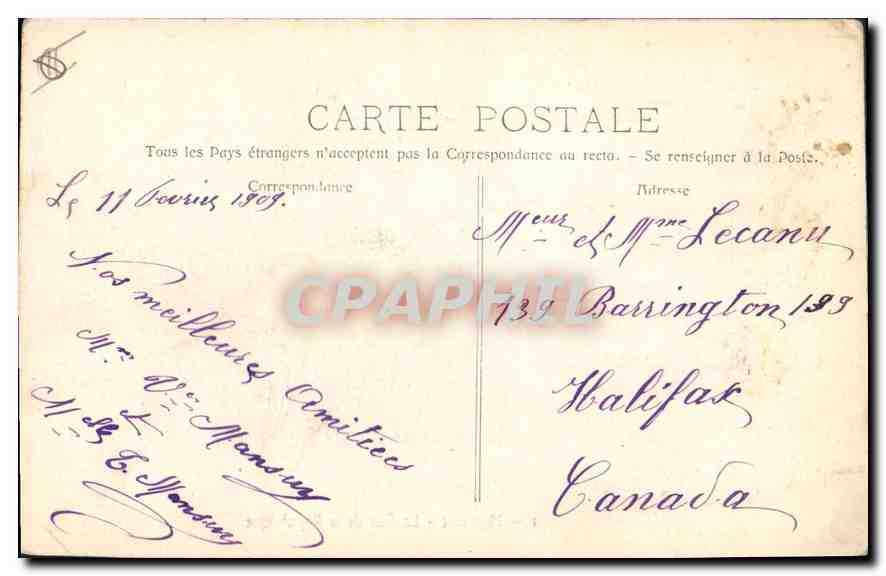 CARTE POSTALE
Tous les Pays étrangers n'acceptent pas la Correspondance au recto. - Se renseigner à la Poste.
Correspondance
Adresse
Le 11 Fevrier 1909.
Nos meilleures Amitiées
Mme Vve Mansuy
et
Mlle E. Mansuy
Meur et Mme Lecanu
139 Barrington 139
Halifax
Canada
CPAPHIL